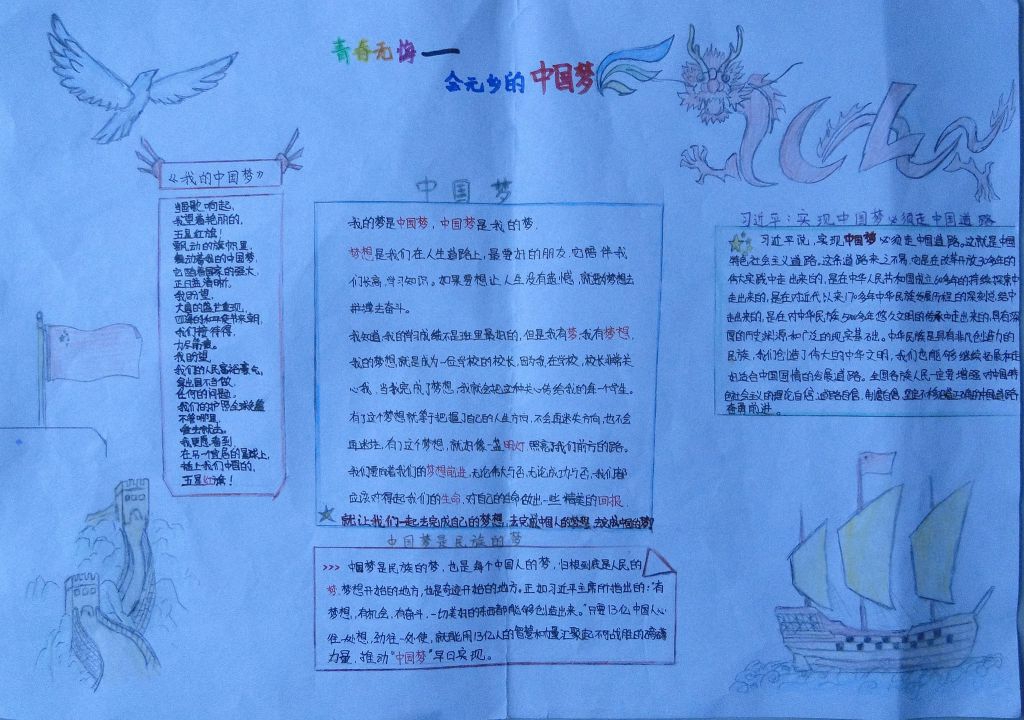 青春无悔——
会元乡的中国梦
《我的中国梦》
当国歌响起,
我望着艳丽的,
五星红旗!
飘动的旗帜里,
飘动着我的中国梦,
它随着国家的强大,
正日益清晰,
我盼望,
大唐的盛世重现,
我们接待得,
我盼望,
我们的人民富裕
任何的问题,
不管哪里,
我更愿看到,
在另一个宜居的星球上,
插上我们中国的,
五星红旗!
中国 梦
我的梦是中国梦,中国梦是我的梦.
梦想是我们在人生道路上,最要好的朋友.它陪伴我
们长高,学习知识。如果要想让人生没有遗憾,就的梦想去
拼搏去奋斗。
我知道我的学习成绩不是班里最好的,但是我有梦,我有梦想,
我的梦想,就是成为一位学校的校长,因为我在学校,校长非常关
心我,当我完成了梦想,我就会把这种关心传给我的每一个学生。
有了这个梦想就等于把握了自己的人生方向,不会再迷失方向,也不会
再迷注,有了这个梦想,就好像一盏明灯,照亮了我们前方的路。
我们要向着我们的梦想前进,无论伟大与否,无论成功与否,我们都
应该对得起我们的生命,对自己的生命做出一些精美的回报.
就让我们一起去完成自己的梦想,去完成中国人的梦想,去完成中国的梦!
中国梦是民族的梦
>>> 中国梦是民族的梦,也是每个中国人的梦,归根到底是人民的
梦.梦想开始的地方,也是奇迹开始的地方。正如习近平主席所指出的:“有
梦想,有机会,有奋斗,一切美好的东西都能够创造出来。”只要13亿中国人心
往一处想,劲往一处使,就能用13亿人的智慧和力量汇聚起不可战胜的磅礴
力量,推动“中国梦”早日实现。
习近平:实现中国梦必须走中国道路
习近平说,实现中国梦必须走中国道路。这就是中国
特色社会主义道路。这条道路来之不易,它是在改革开放30多年的
伟大实践中走出来的,是在中华人民共和国成立60多年的持续探索中
走出来的,是在对近代以来170多年中华民族发展历程的深刻总结中
走出来的,是在对中华民族5000多年悠久文明的传承中走出来的,具有深
厚的历史渊源和广泛的现实基础。中华民族是具有非凡创造力的
民族,我们创造了伟大的中华文明,我们也能够继续拓展和走
好适合中国国情的发展道路。全国各族人民一定要增强对中国特
色社会主义的理论自信、道路自信、制度自信,坚定不移沿着正确的中国道路
奋勇前进。